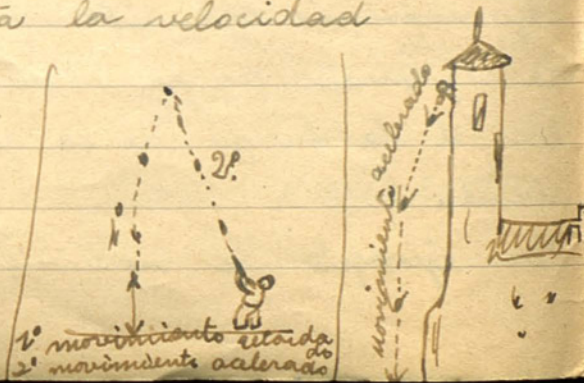 a la velocidad
1º
2º
1º movimiento retarda
do
2º movimiento acelerado
Movimiento acelerado